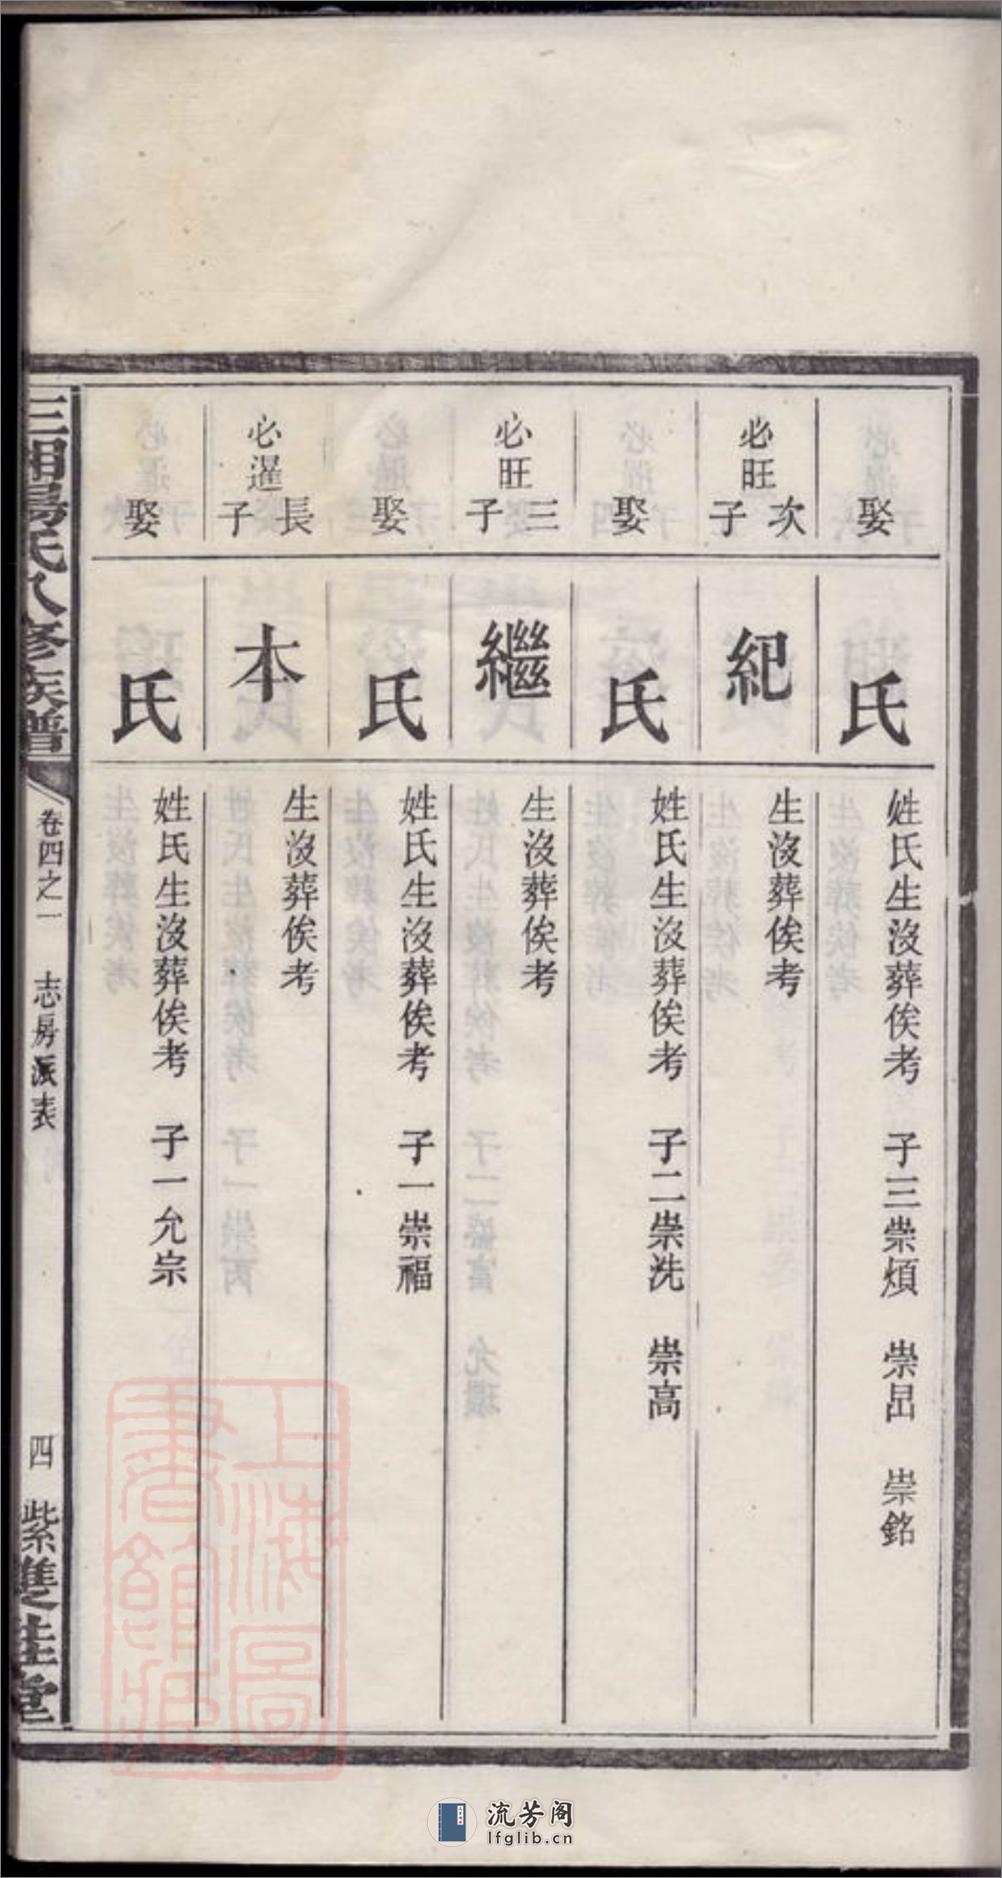 娶
氏
姓氏生沒葬俟考　子三崇煩　崇昌　崇銘
必旺次子
紀
生沒葬俟考
娶
氏
姓氏生沒葬俟考　子二崇洗　崇高
必旺三子
繼
生沒葬俟考
娶
氏
姓氏生沒葬俟考　子一崇福
必暹長子
本
生沒葬俟考
娶
氏
姓氏生沒葬俟考　子一允宗
三湘湯氏八修族譜
卷四之一　志房派表
四
紫雙桂堂
上海圖書館藏
流芳阁
lfglib.cn